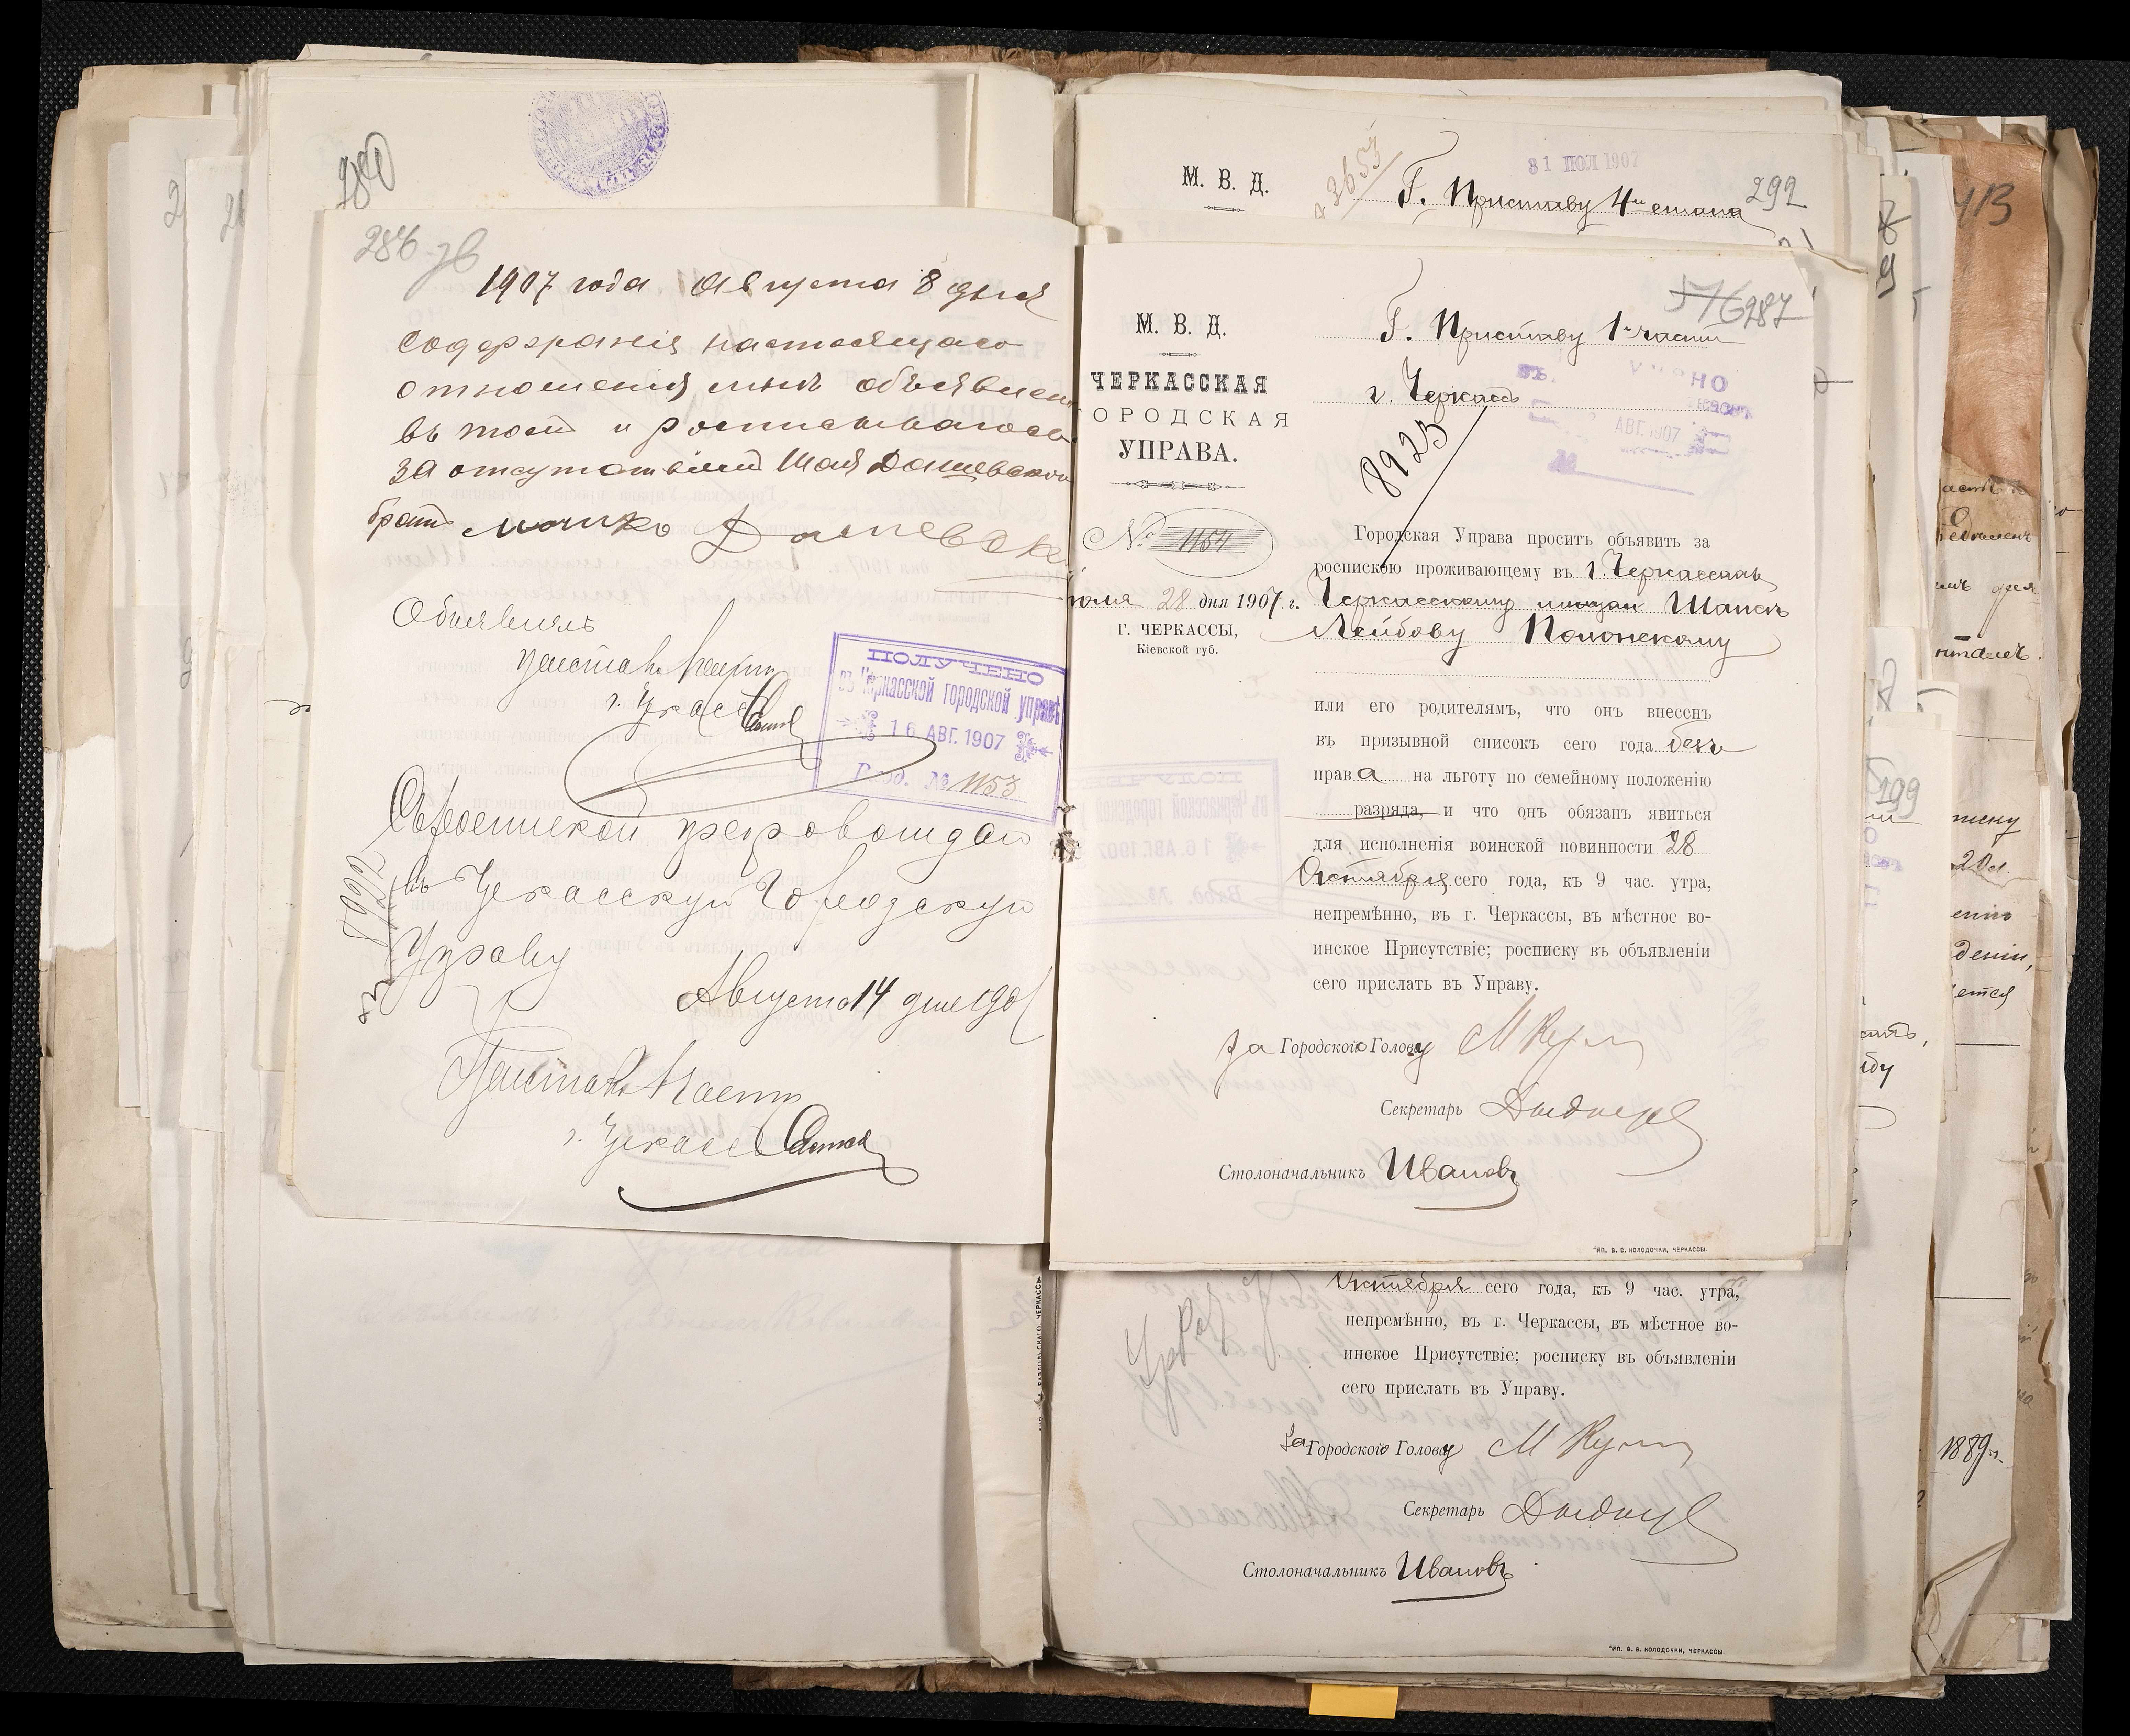 280
286 зв
1907 года Августа 8 дня
содержаніе настоящаго
отношенія мнѣ объявлено
въ томъ и росписываюсь
за отсутствіемъ Шая Дашевскаго
братъ Мошко Дашевскій
Объявилъ
Приставъ 1 части
г. Черкассъ
ПОЛУЧЕНО
въ Черкасской городской управѣ
16 АВГ. 1907
Вход. № 1153
Съ роспиской препровождаю
въ Черкасскую Городскую
Управу
Августа 14 дня 1907
Приставъ 1 части
г. Черкассъ
М. В. Д.
31 ІЮЛ 1907
Г. Приставу 4го стана
292
287
М. В. Д.
ЧЕРКАССКАЯ
ОРОДСКАЯ
УПРАВА.
№ 1154
юля 28 дня 1907 г.
Г. ЧЕРКАССЫ,
Кіевской губ.
Г. Приставу 1й части
г. Черкассъ
АВГ. 1907
8923
Городская Управа проситъ объявить за
роспискою проживающему въ г. Черкассахъ
Черкасскому мѣщан
Лейбову Полонскому
или его родителямъ, что онъ внесенъ
въ призывной списокъ сего года безъ
права на льготу по семейному положенію
разряда, и что онъ обязанъ явиться
для исполненія воинской повинности 28
Октября сего года, къ 9 час. утра,
непремѣнно, въ г. Черкассы, въ мѣстное во-
инское Присутствіе; росписку въ объявленіи
сего прислать въ Управу.
За Городского Голову
Секретарь
Столоначальникъ Ивановъ
ТИП. В. В. КОЛОДОЧКИ, ЧЕРКАССЫ.
Октября сего года, къ 9 час. утра,
непремѣнно, въ г. Черкассы, въ мѣстное во-
инское Присутствіе; росписку въ объявленіи
сего прислать въ Управу.
За Городского Голову
Секретарь
Столоначальникъ Ивановъ
ТИП. В. В. КОЛОДОЧКИ, ЧЕРКАССЫ
199
1889 г.